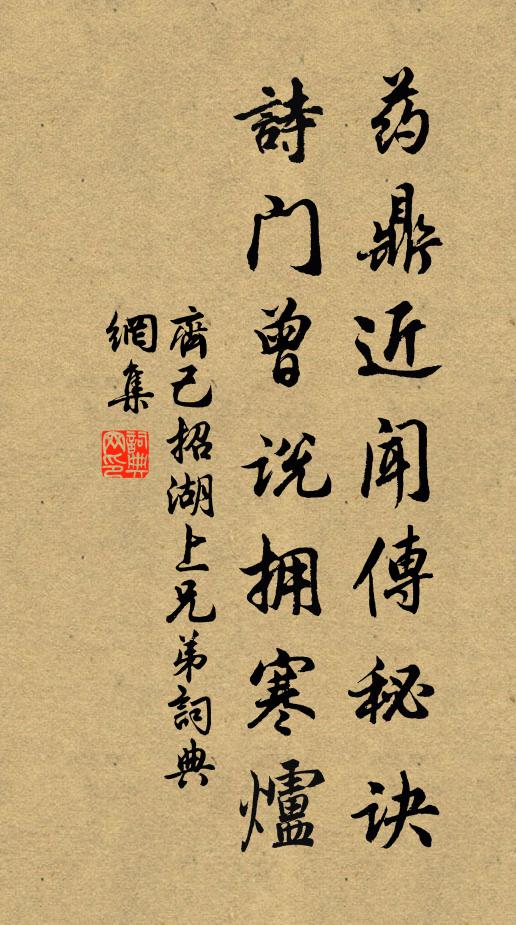 药鼎近闻傳秘诀
詩门曾说拥寒爐
齊己招湖上兄弟詞典
網集
詞典网印